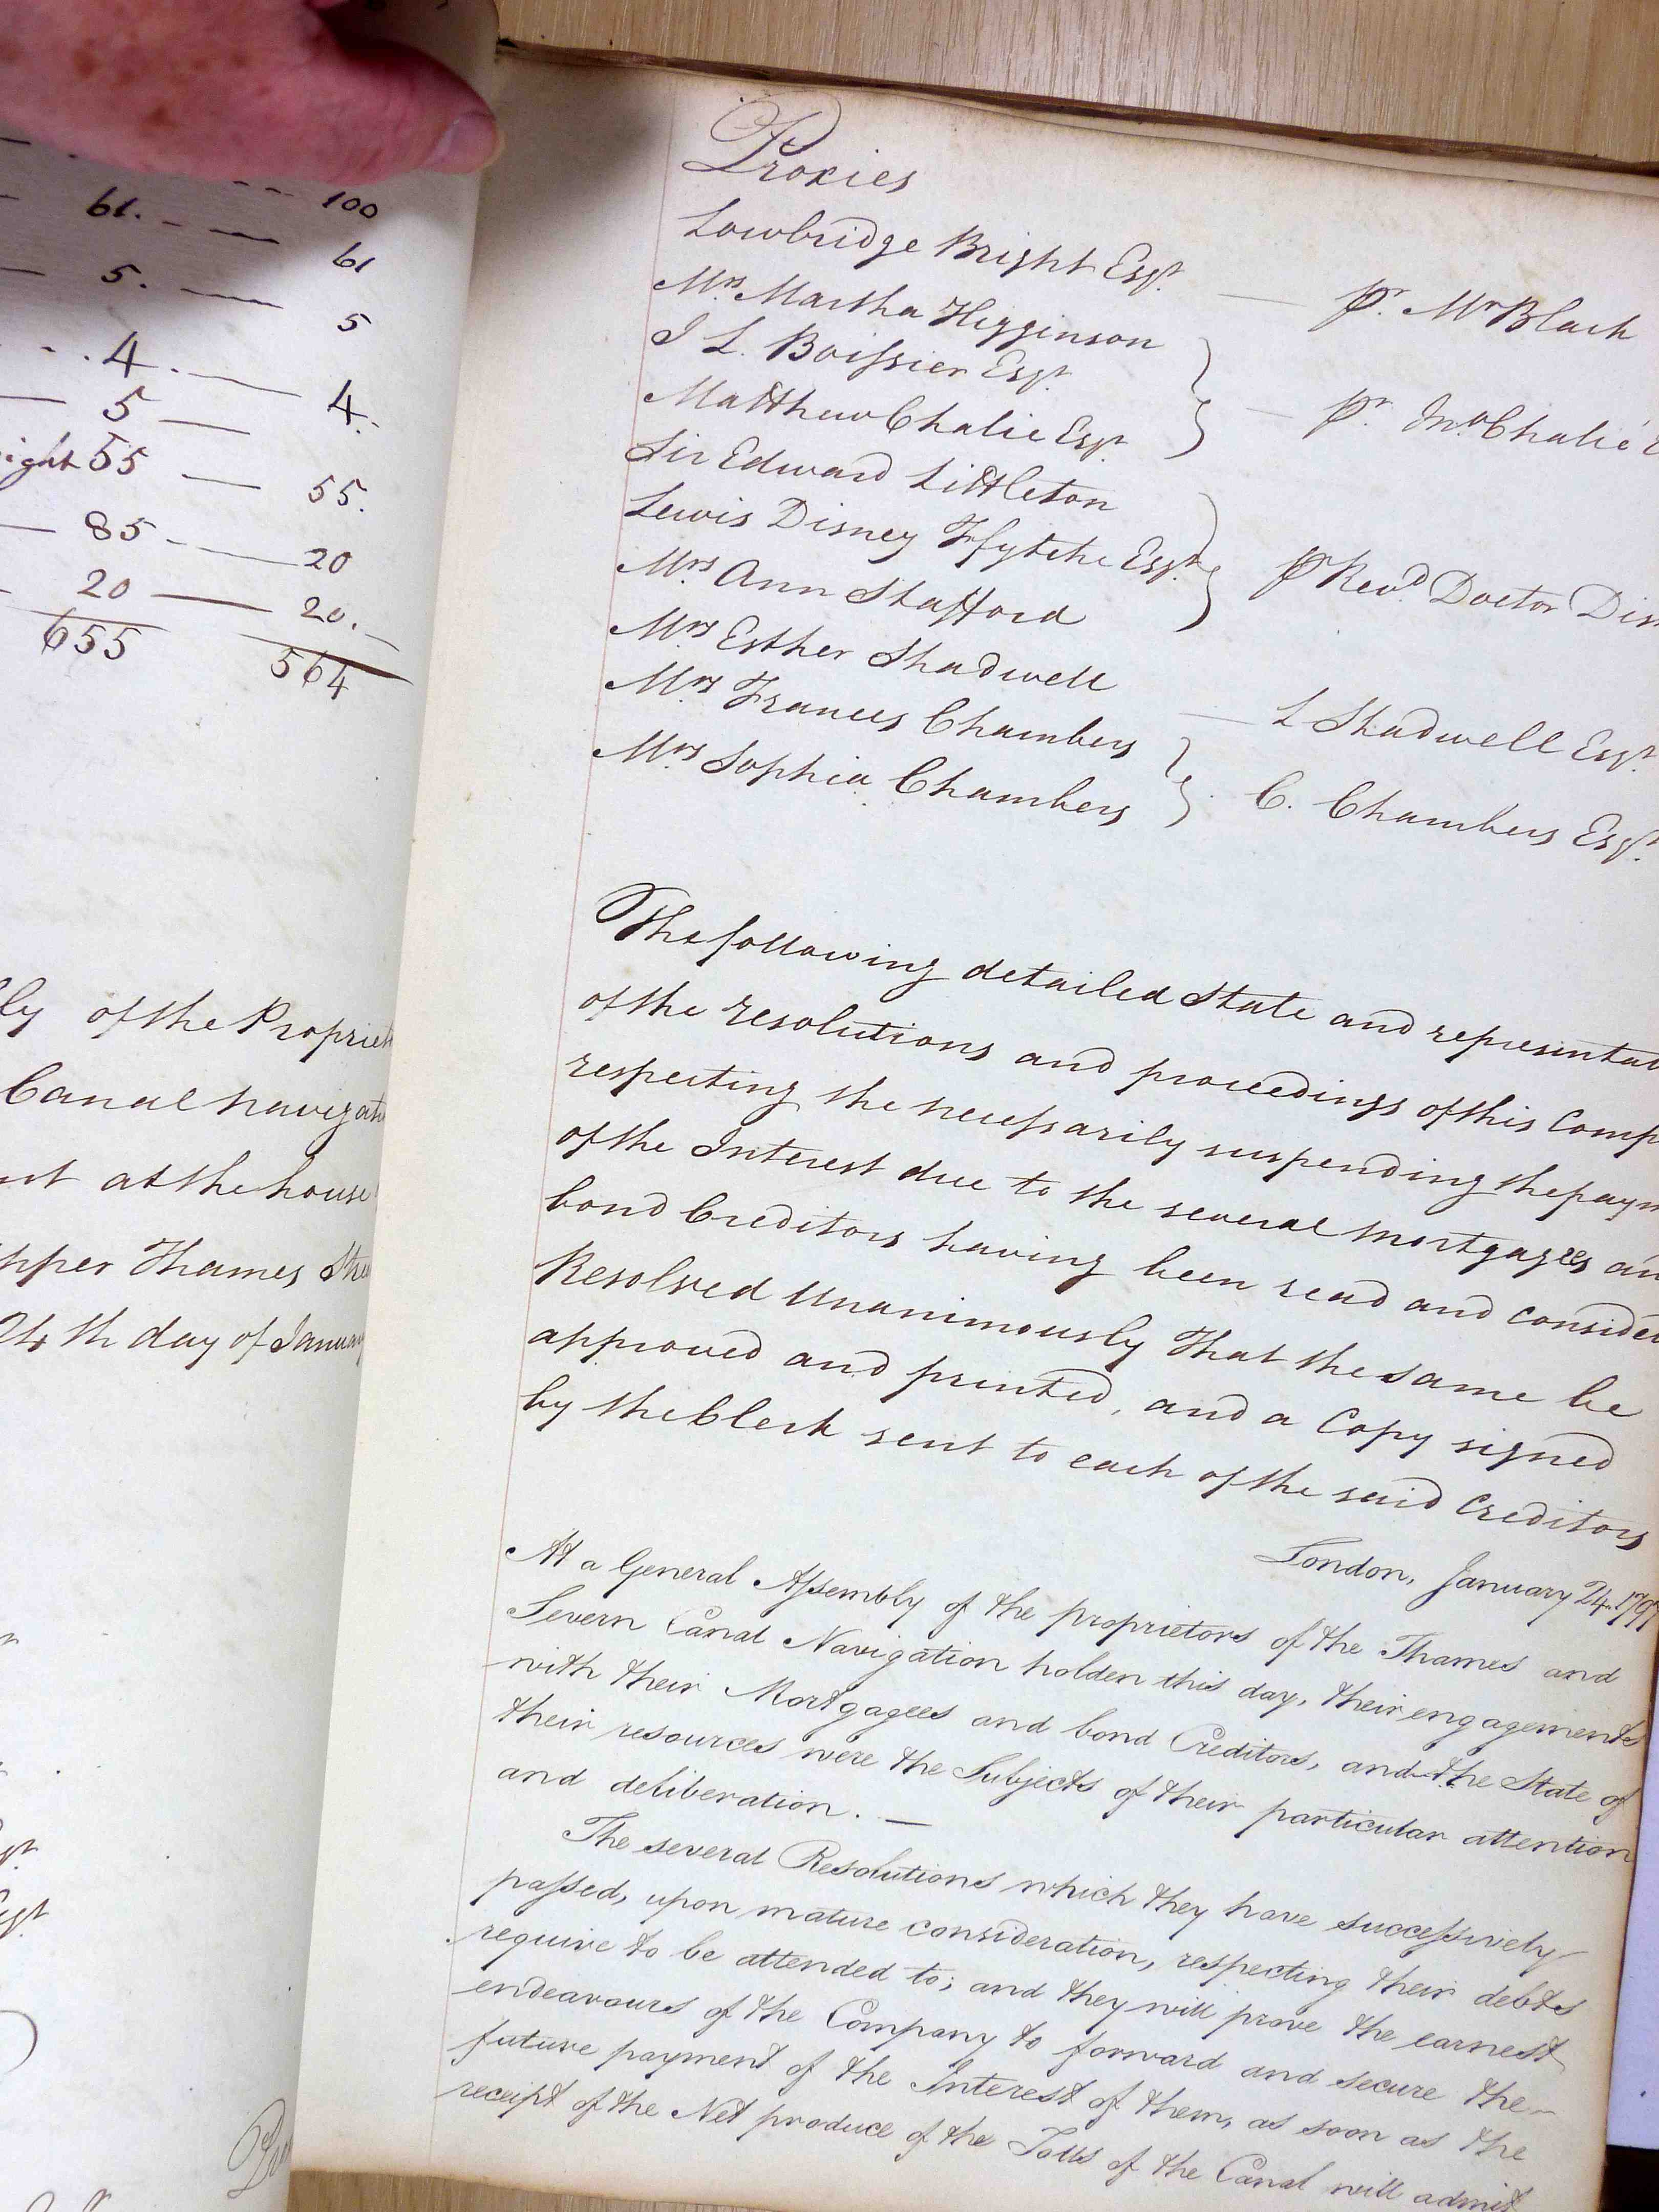 100
61. 61
5. 5
4. 4.
5
ight 55 55.
85 20
20 20.
655 564
of the Propriet
Canal navigati
at the house
pper Thames Stre
24th day of January
Proxies
Lowbridge Bright Esqr. pr. Mr Black
Mrs. Martha Higginson
J L. Boissier Esqr.
Matthew Chalie Esqr. pr. Jno. Chalié E
Sir Edward Littleton
Lewis Disney Ffytche Esqr. pr Revd Doctor Disn
Mrs. Ann Stafford
Mrs Esther Shadwell L Shadwell Esqr.
Mrs Frances Chambers
Mrs Sophia Chambers C. Chambers Esqr.
The following detailed State and representat
of the resolutions and proceedings of this Comp
respecting the necessarily suspending the paym
of the Interest due to the several Mortgagees an
bond Creditors having been read and consider
Resolved Unanimously That the same be
approved and printed, and a Copy signed
by the Clerk sent to each of the said Creditors
London, January 24. 1797
At a General Assembly of the proprietors of the Thames and
Severn Canal Navigation holden this day, their engagements
with their Mortgagees and bond Creditors, and the State of
their resources were the Subjects of their particular attention
and deliberation. —
The several Resolutions which they have successively
passed, upon mature consideration, respecting their debts
require to be attended to; and they will prove the earnest
endeavours of the Company to forward and secure the
future payment of the Interest of them, as soon as the
receipt of the Net produce of the Tolls of the Canal will admit